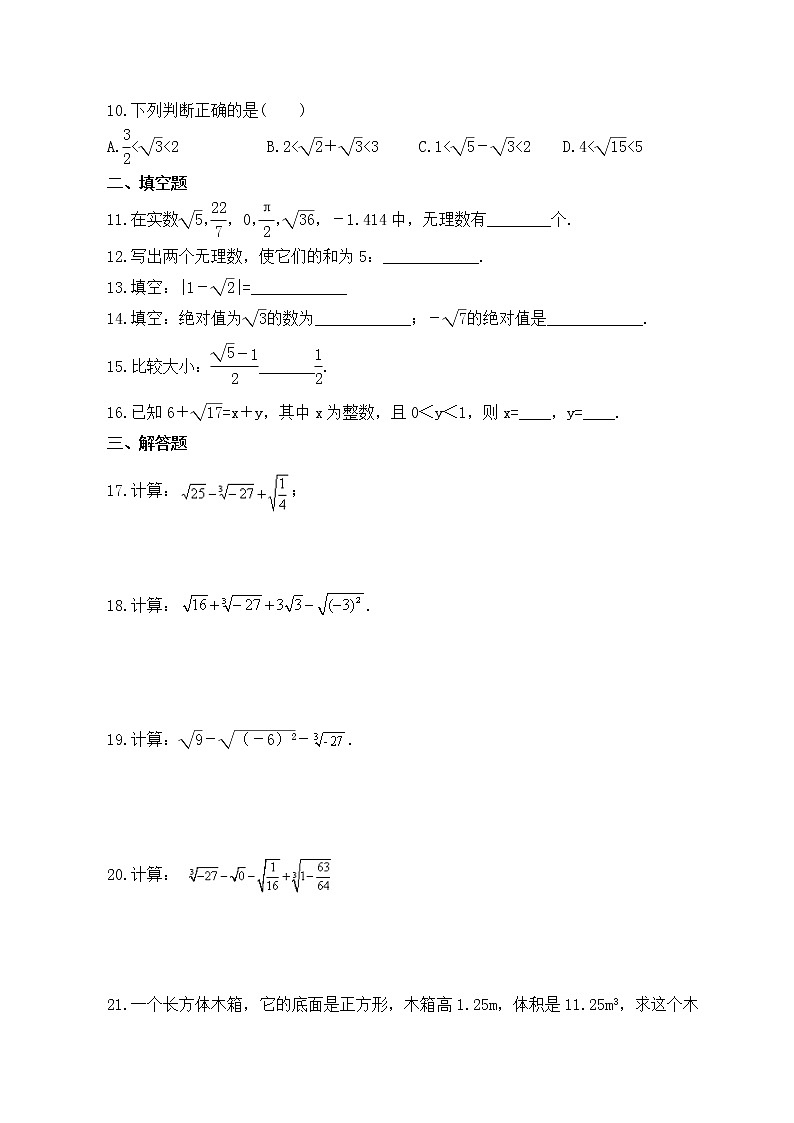 10.下列判断正确的是(　　)
A.3/2<√3<2　　B.2<√2+√3<3　　C.1<√5-√3<2　　D.4<√15<5
二、填空题
11.在实数√5,22/7,0,π/2,√36,-1.414中,无理数有________个.
12.写出两个无理数,使它们的和为5:____________.
13.填空:|1-√2|=____________
14.填空:绝对值为√3的数为____________;-√7的绝对值是____________.
15.比较大小:(√5-1)/2_______1/2.
16.已知6+√17=x+y,其中x为整数,且0<y<1,则x=____,y=____.
三、解答题
17.计算: √25-∛-27+√(1/4);
18.计算: √16+∛-27+3√3-√(-3)².
19.计算:√9-√(-6)²-∛-27.
20.计算: ∛-27-√0-√(1/16)+∛(1-63/64)
21.一个长方体木箱,它的底面是正方形,木箱高1.25m,体积是11.25m³,求这个木